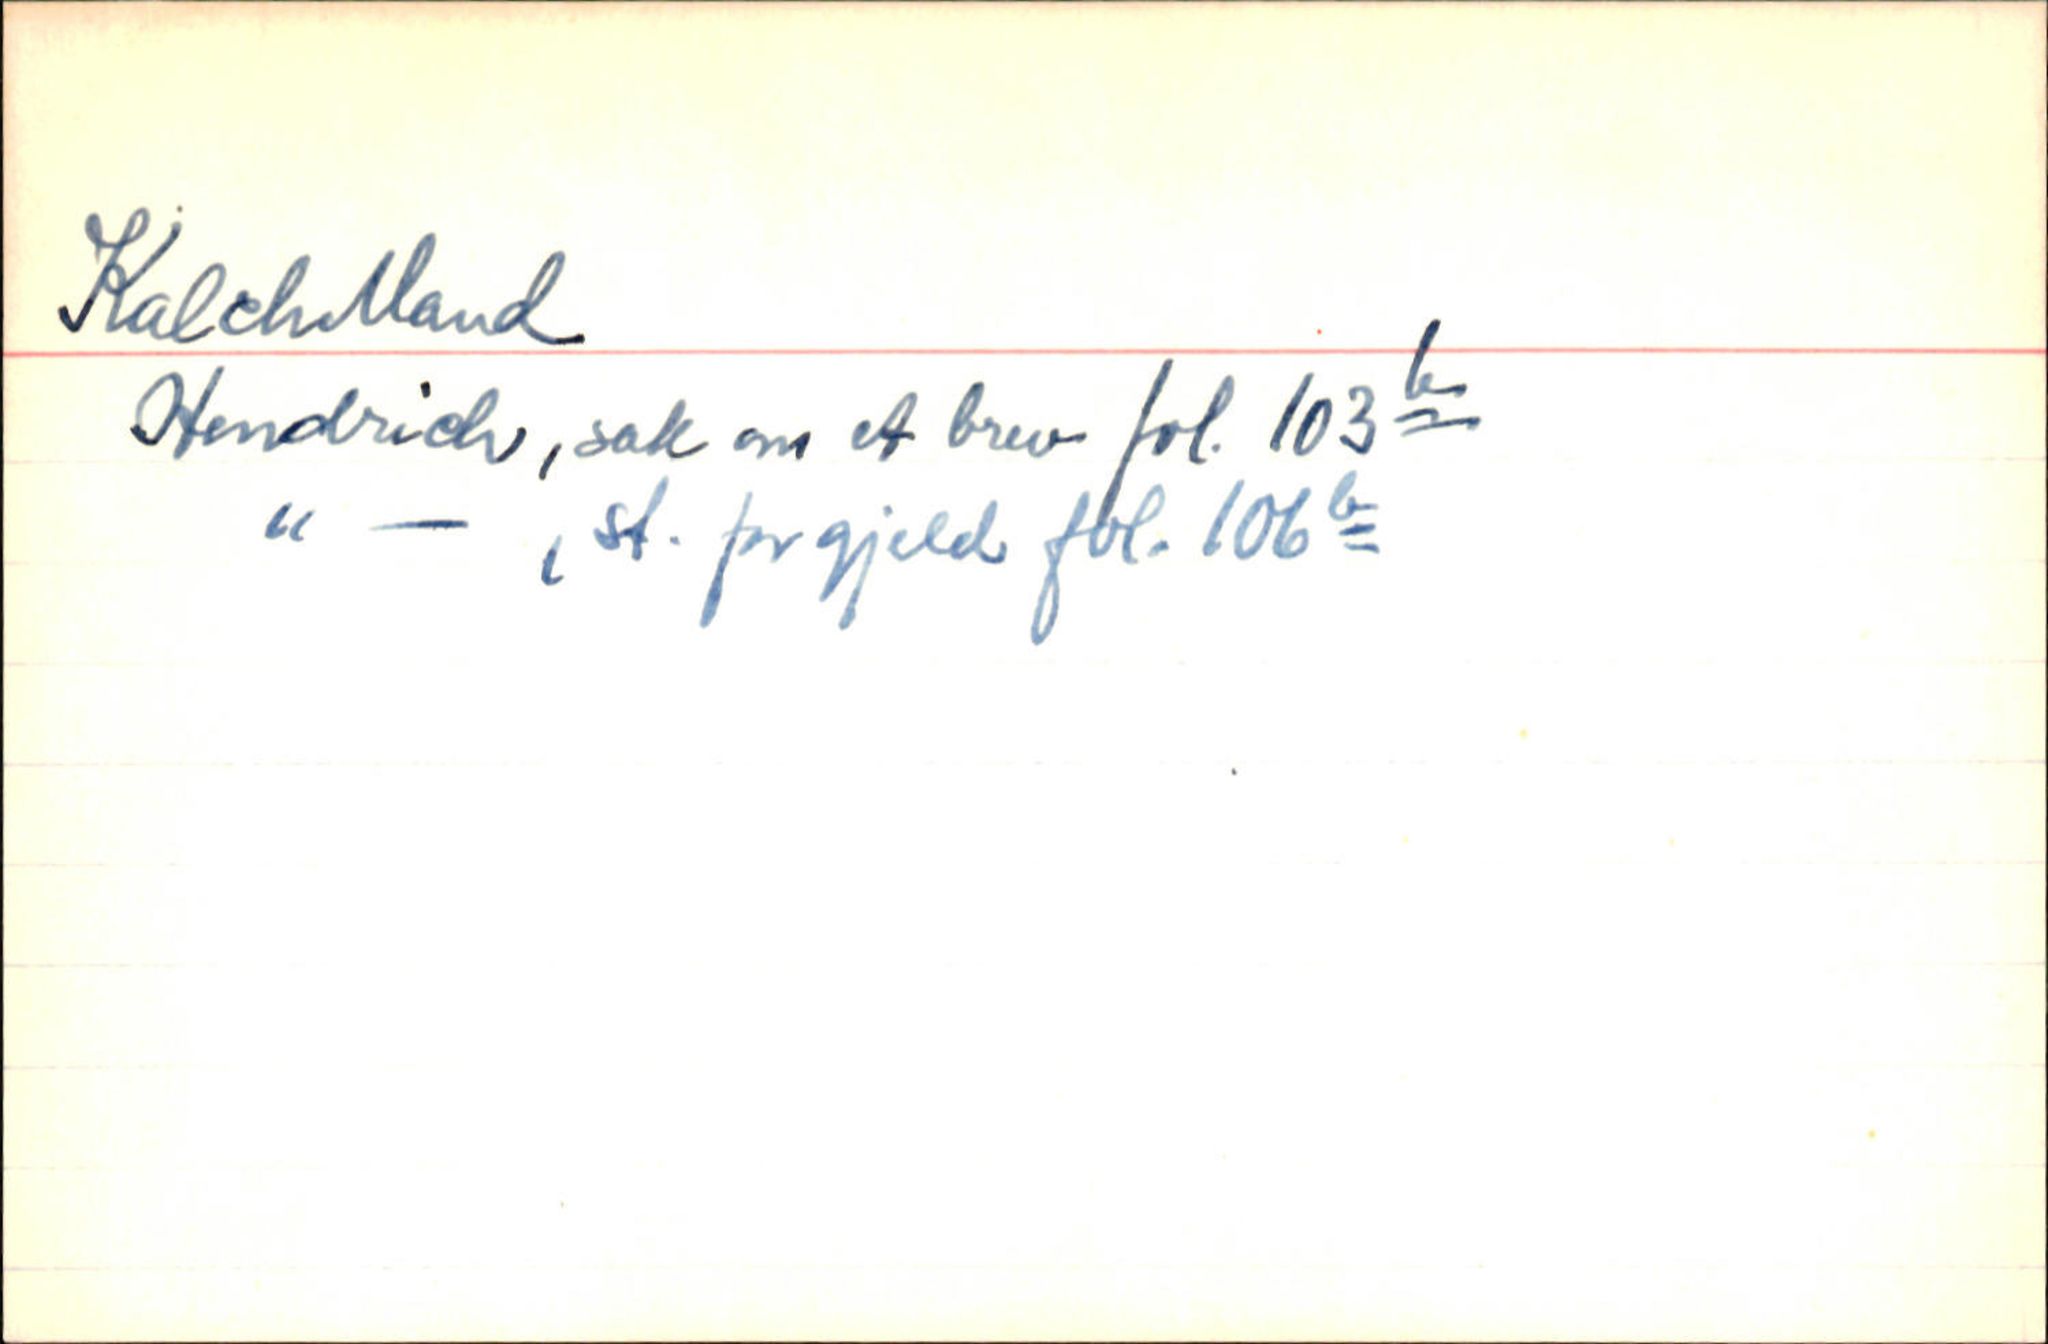 Kalchilland
Hendrich, sak om et brev fol. 103 b
" — , st. for gjeld fol. 106 b